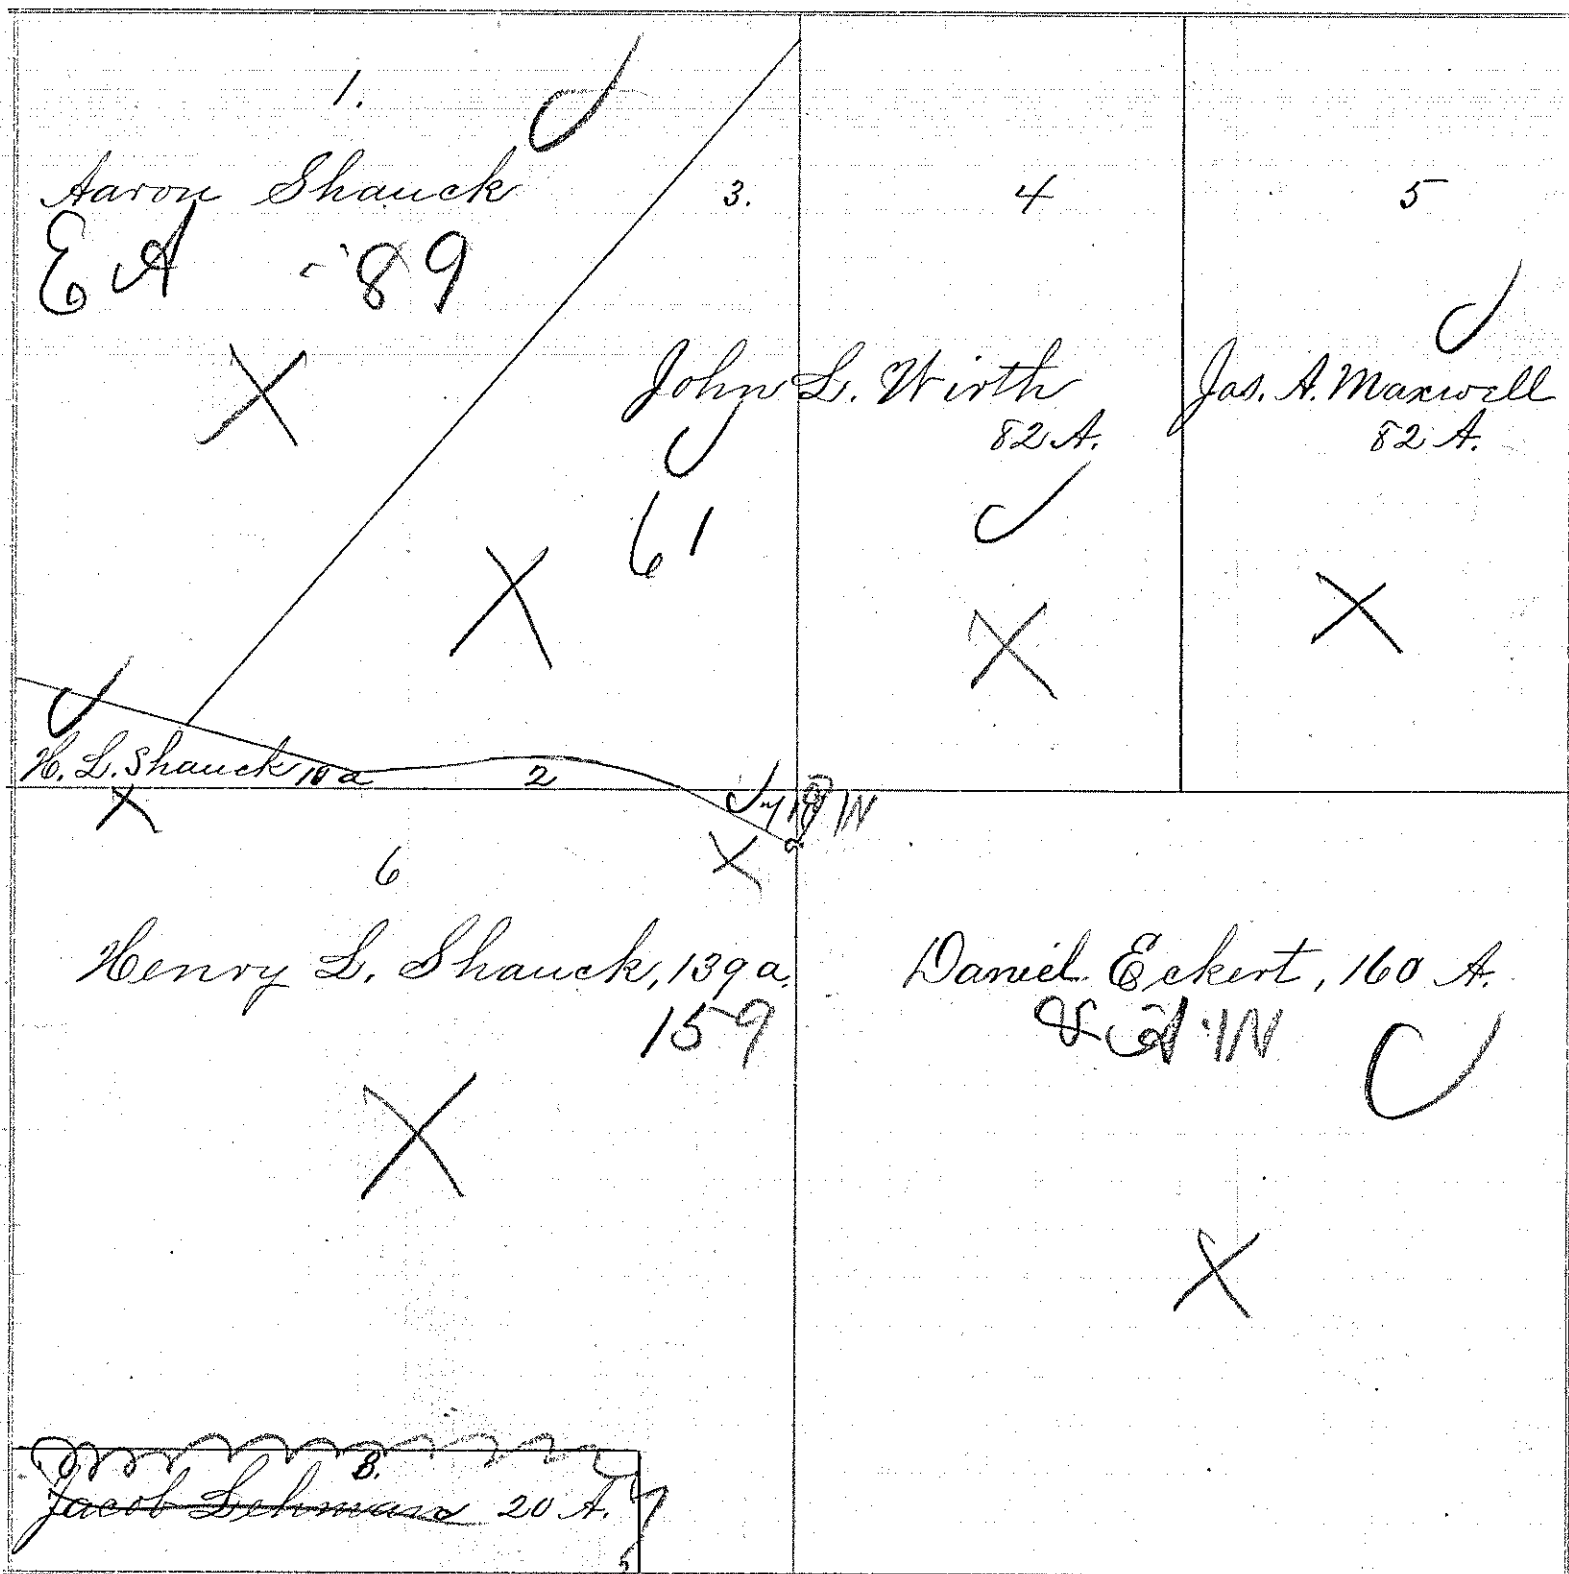 1.
Aaron Shauck
EA -89
3.
4
5
John L. Wirth
82 A.
61
Jas. A. Maxwell
82 A.
H. L. Shauck 10 a
2
6
Henry L. Shauck, 139 a.
159
Daniel Eckert, 160 A.
B.
Jacob Lehman 20 A.